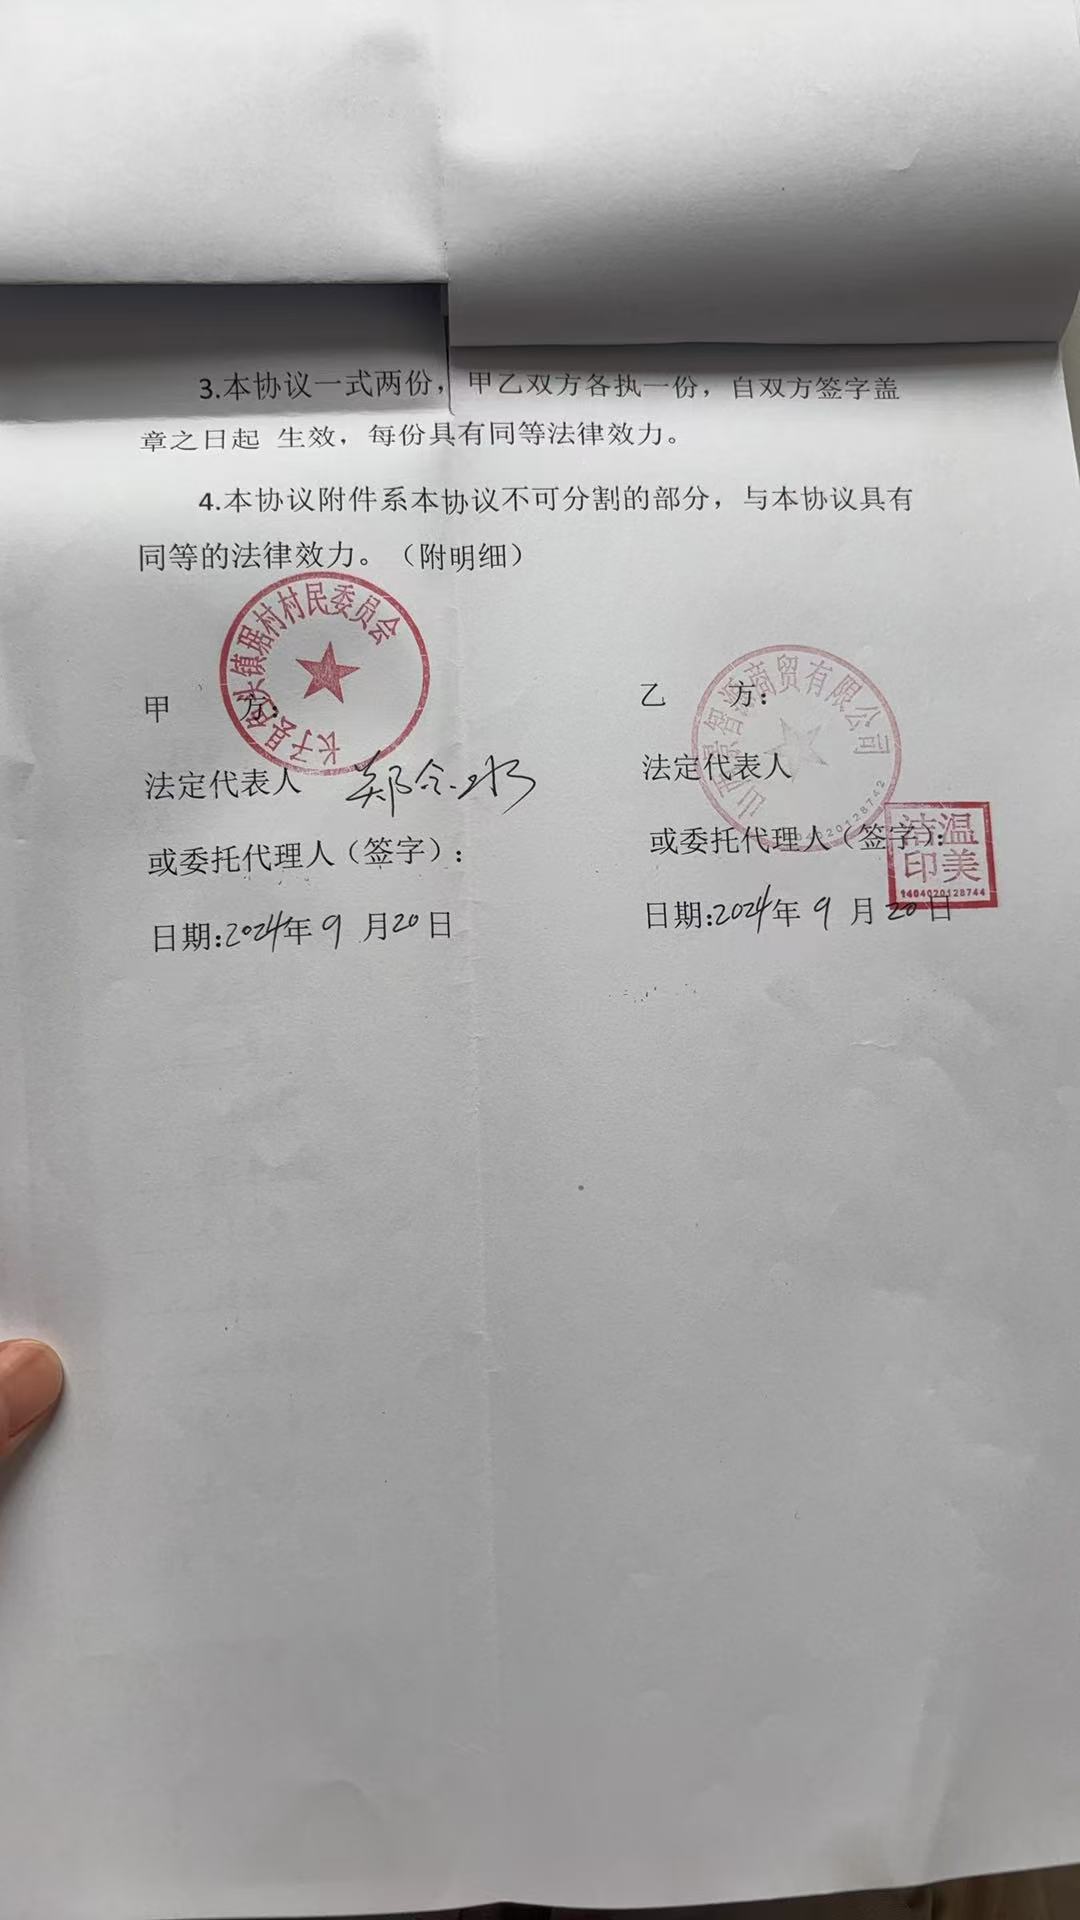 3.本协议一式两份，甲乙双方各执一份，自双方签字盖
章之日起 生效，每份具有同等法律效力。
4.本协议附件系本协议不可分割的部分，与本协议具有
同等的法律效力。（附明细）
长子县色头镇琚村村民委员会
甲 方:
法定代表人
或委托代理人（签字）:
日期:2024年9月20日
商贸有限公司
乙 方:
法定代表人
或委托代理人（签字）:
温美
印
1404020128744
日期:2024年9月20日